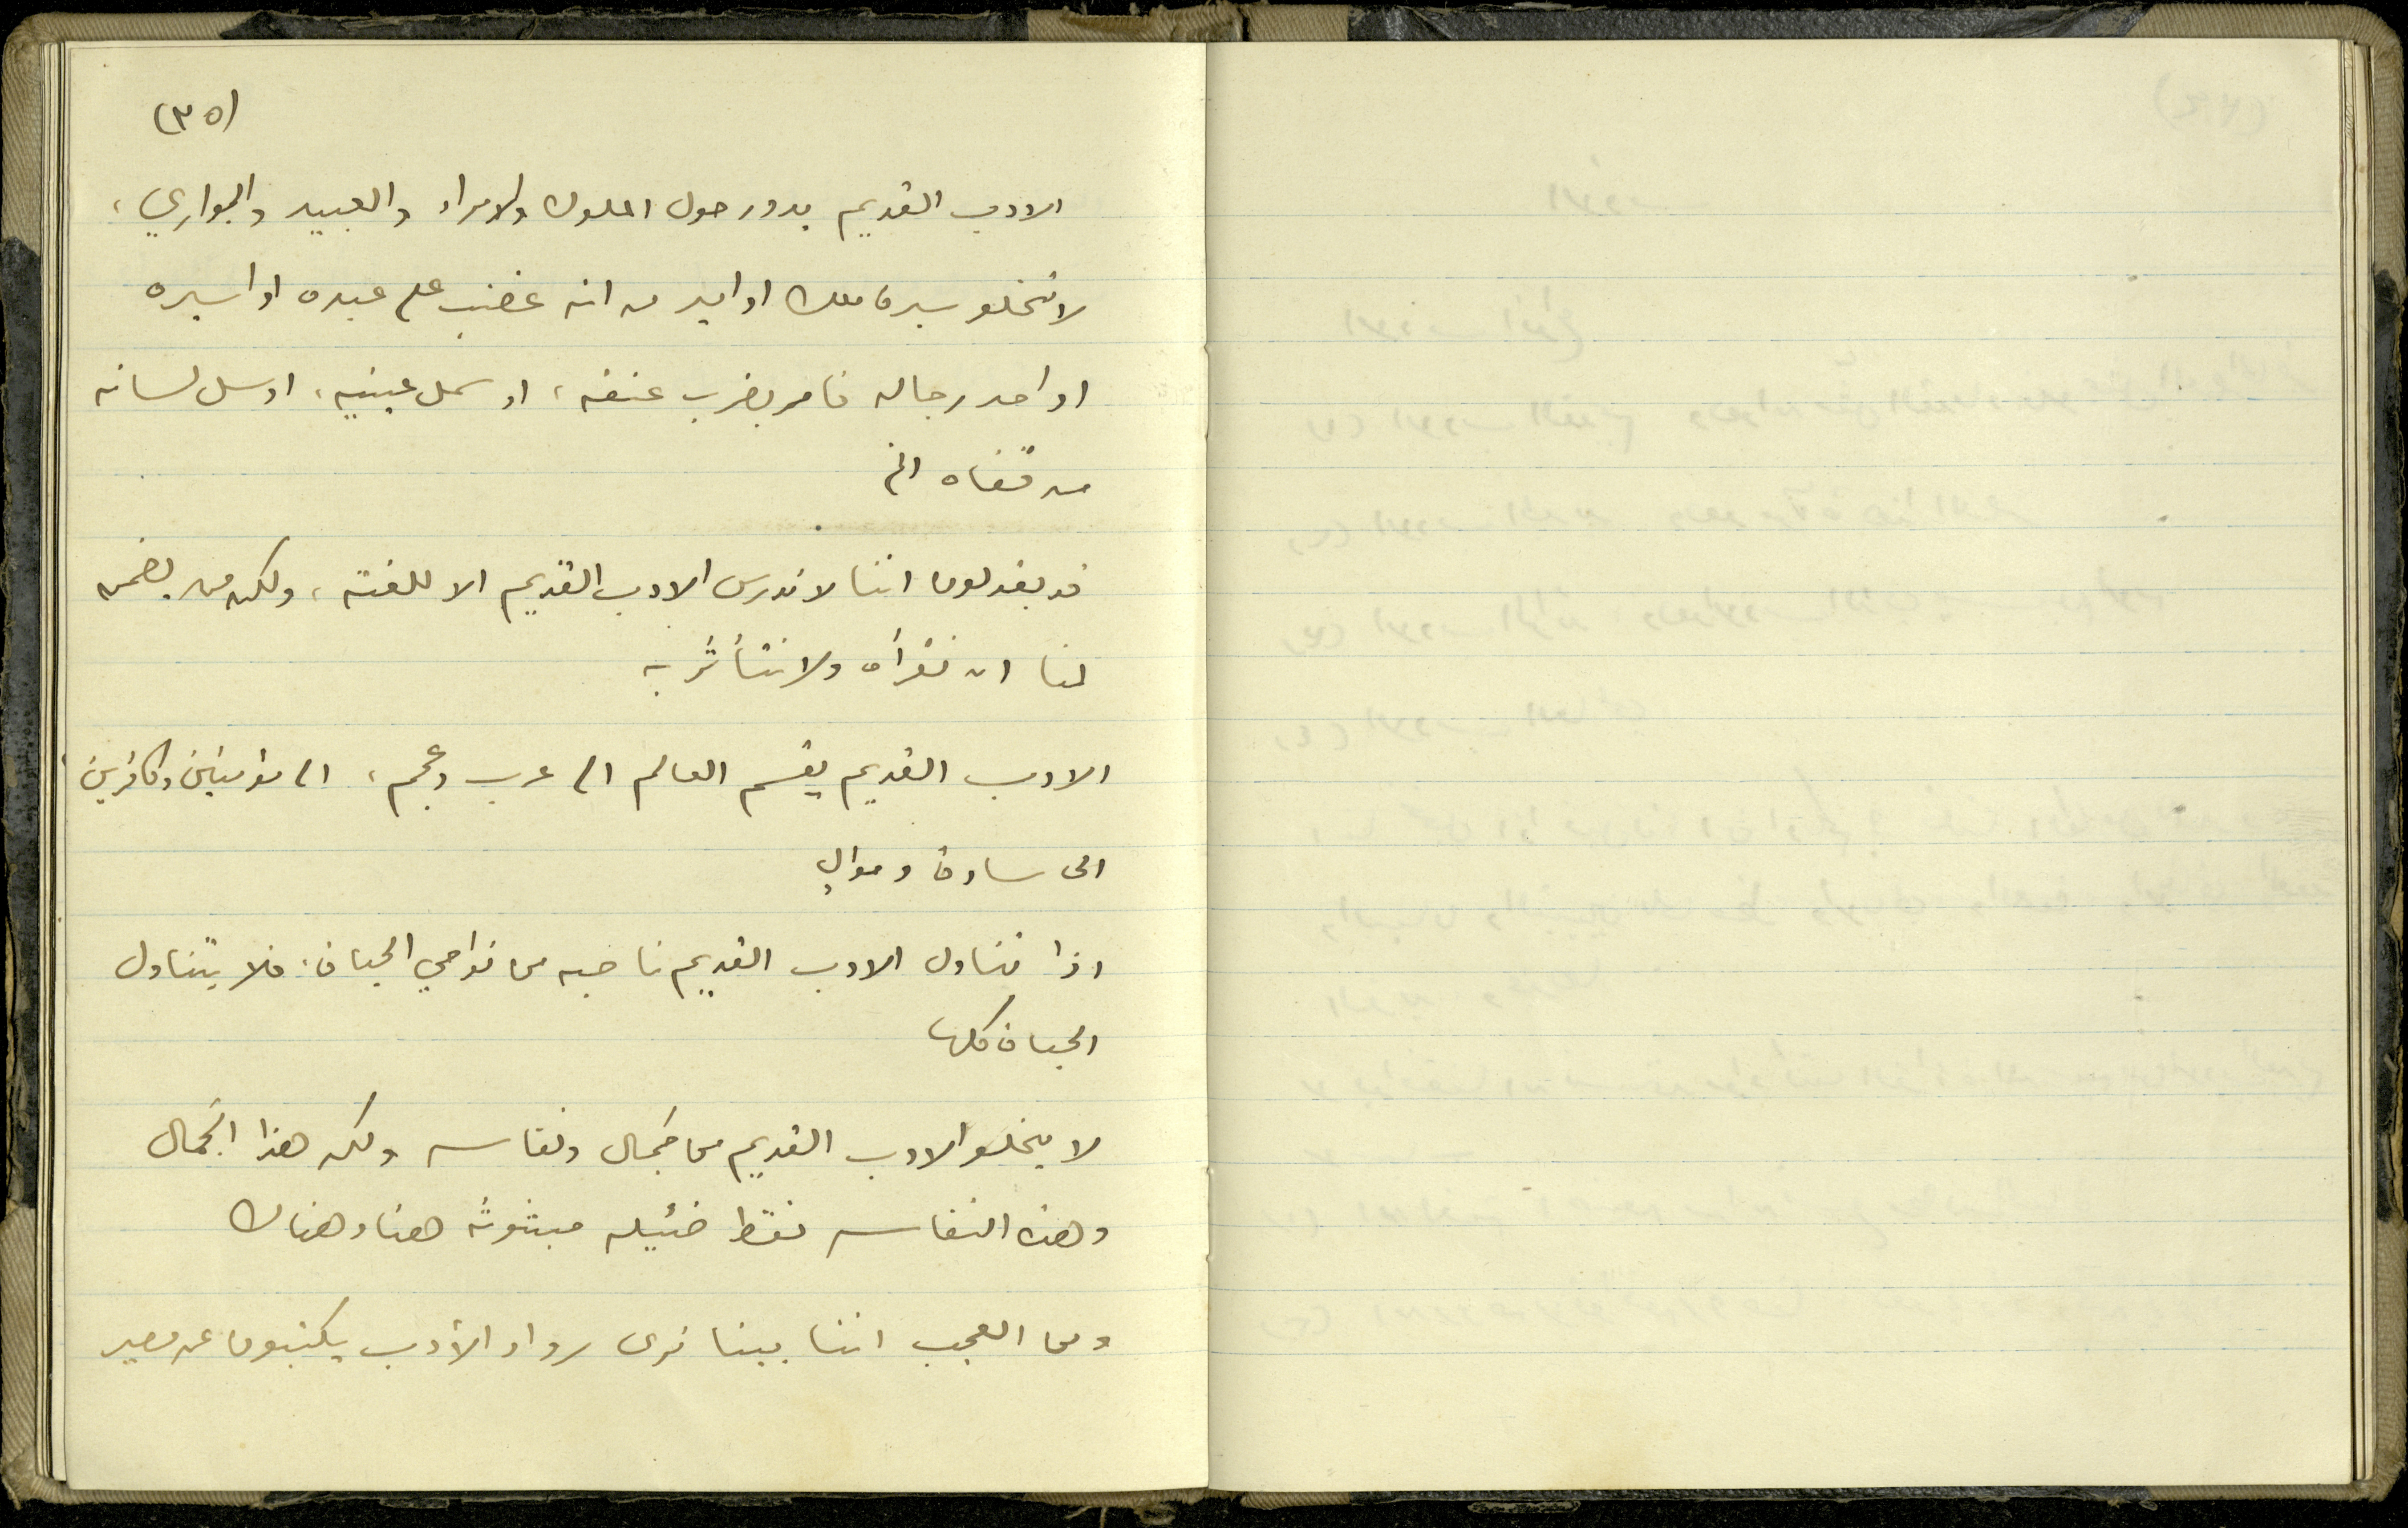 (٣٥)
الادب القديم يدور حول الملوك والامراء والعبيد والجواري،
لا تخلو سيرة ملك او امير من انه غضب على عبده او اسيره
او احد رجاله فامر بضرب عنقه، او سمل عينيه، او سل لسانه
من قفاه الخ
قد يقولون اننا لا ندرس الادب القديم الا للغته، ولكن من يضمن
لنا ان نقرأه ولا نتأثر به
الادب القديم يقسم العالم الى عرب وعجم، الى مؤمنين وكافرين
الى سادة وموالٍ
اذا تناول الادب القديم ناحيه من نواحي الحياة، فلا يتناول
الحياة كلها
لا يخلو الادب القديم من جمال ونفاسه ولكن هذا الجمال
وهذه النفاسه نقط ضئيله مبثوثه هنا وهناك
ومن العجب اننا بينا نرى رواد الأدب يكتبون عن مصير